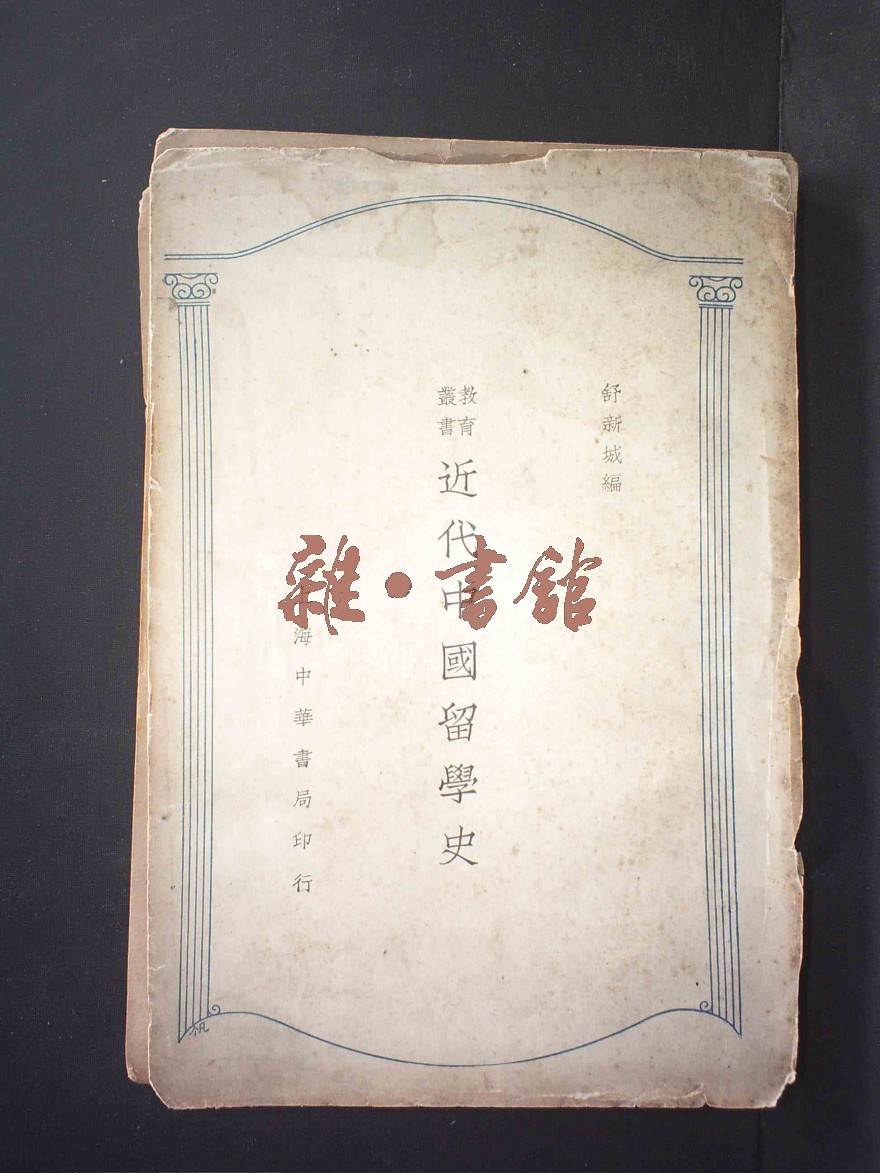 舒新城編
教育
叢書
近代中國留學史
上海中華書局印行
雜·書館
帆